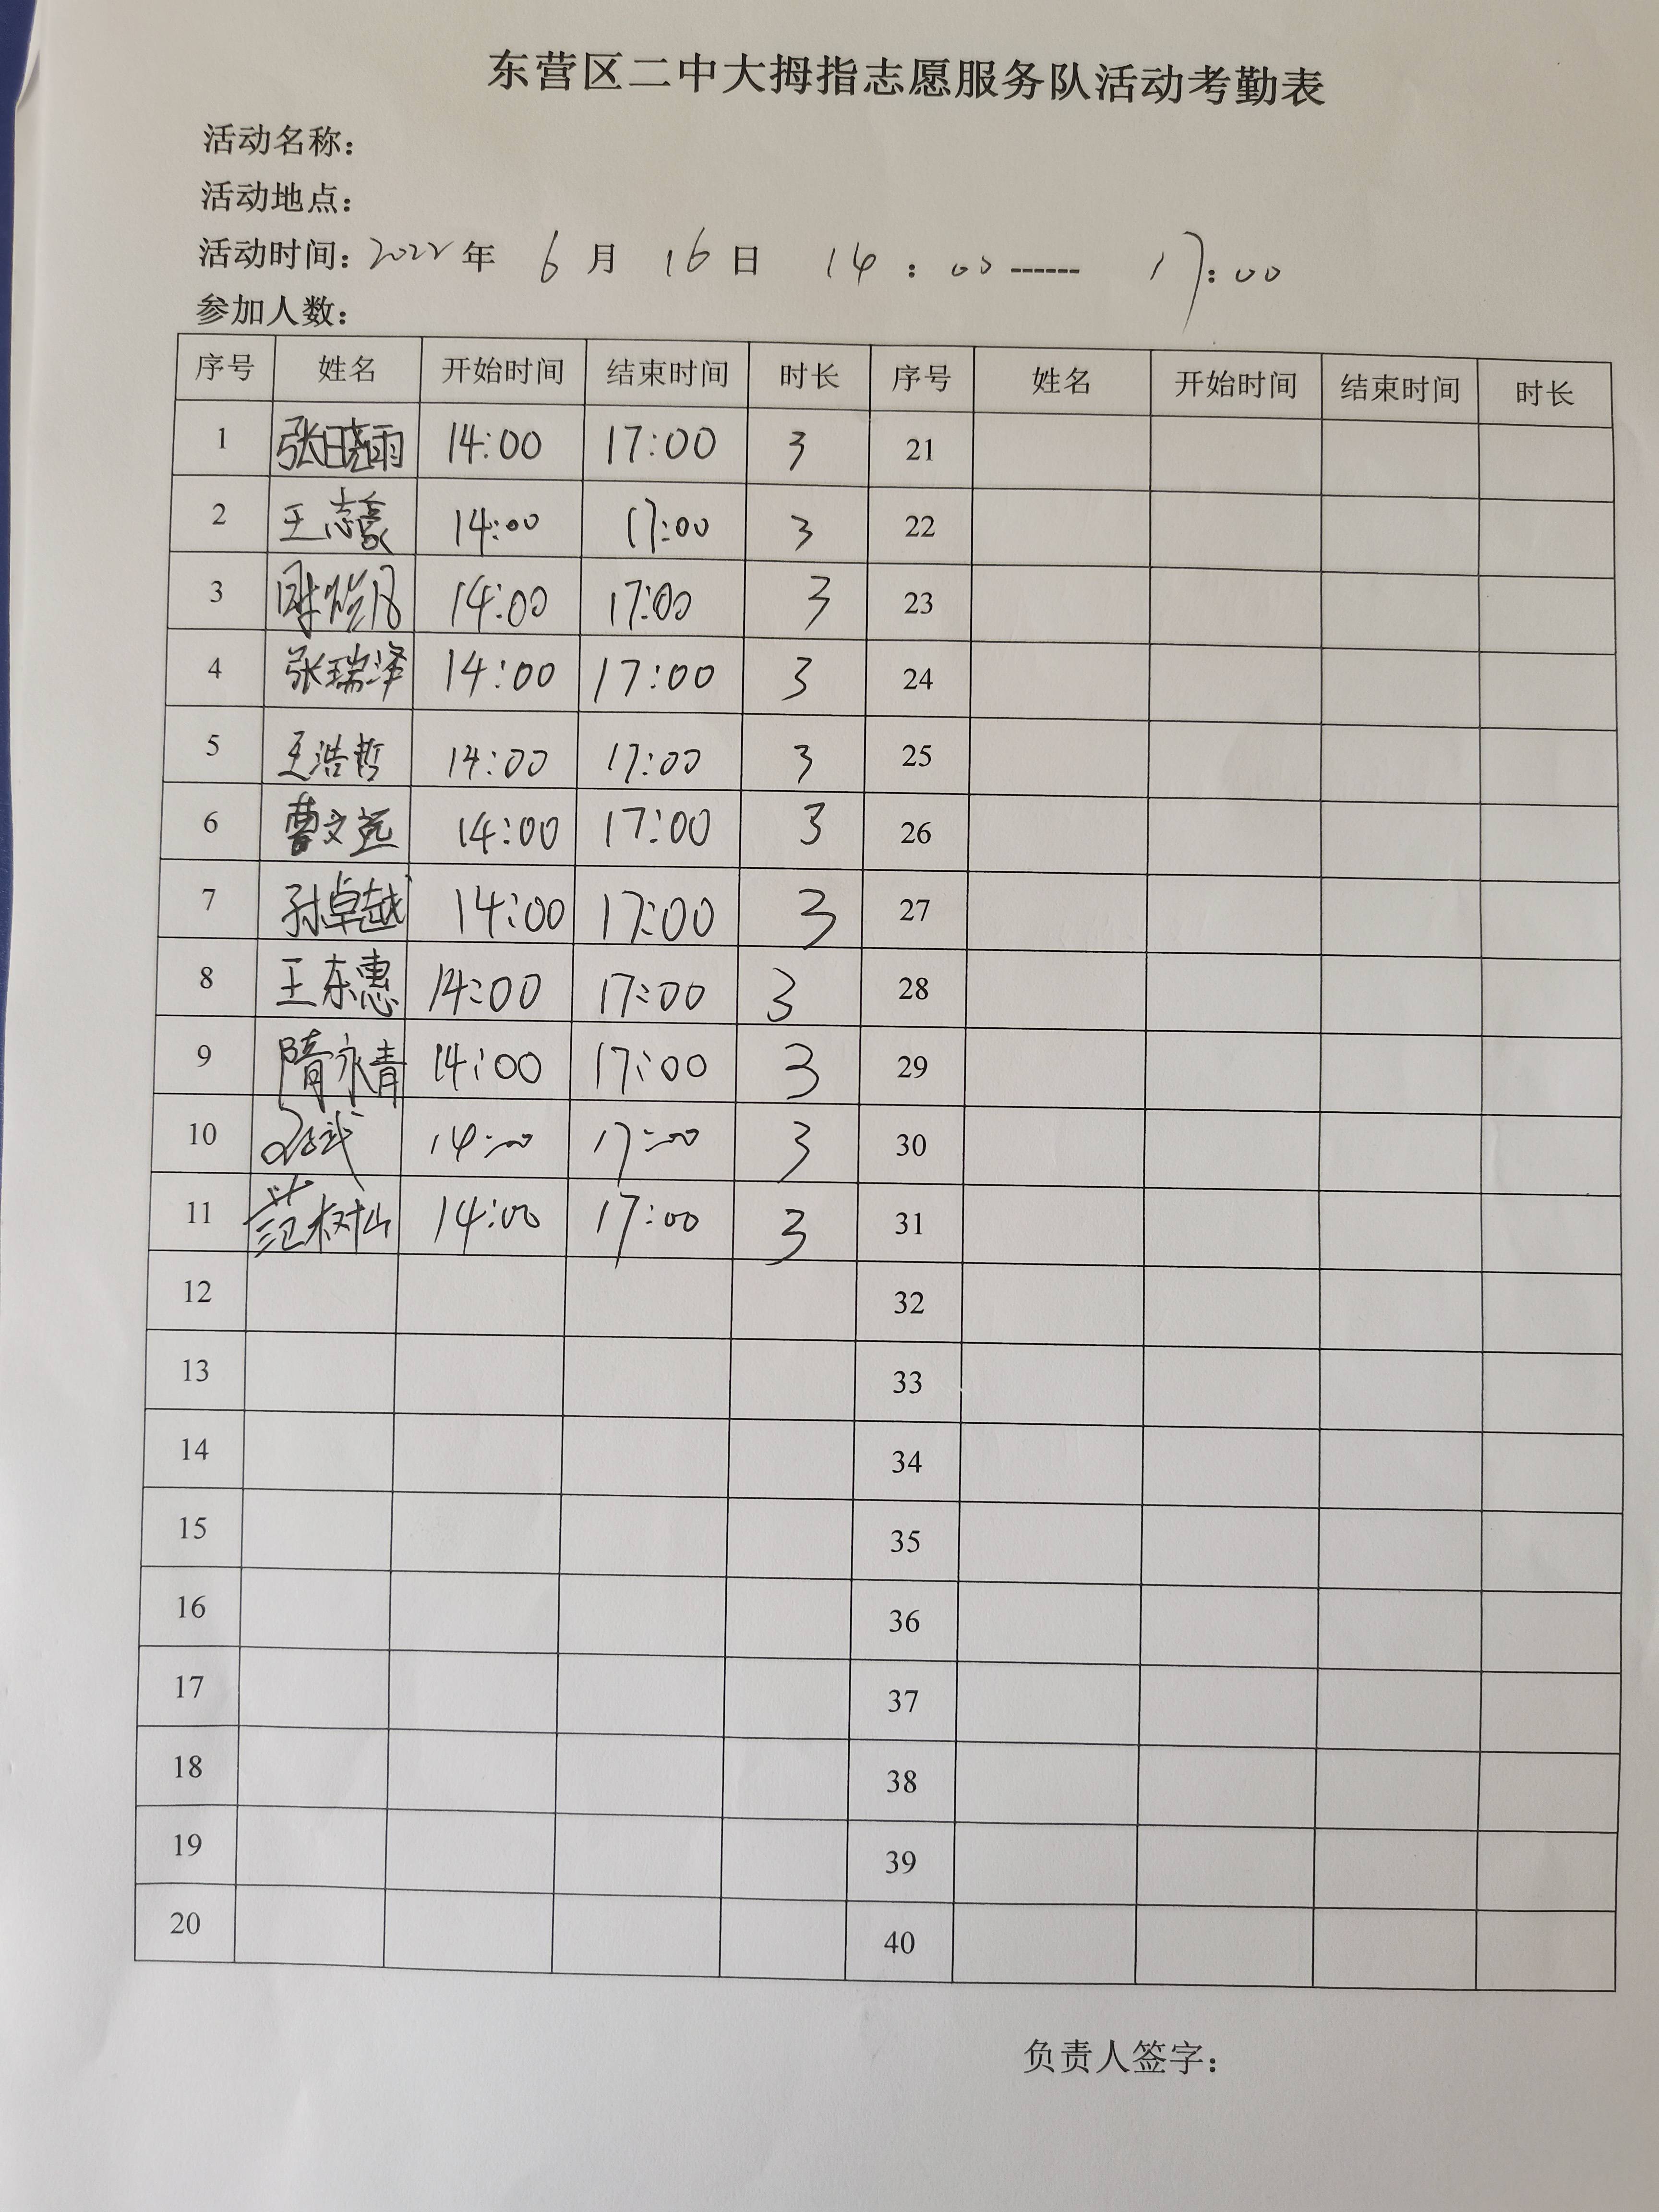 东营区二中大拇指志愿服务队活动考勤表
活动名称：
活动地点：
活动时间：2022年 6月 16日 14：00------ 17：00
参加人数：
序号 姓名 开始时间 结束时间 时长 序号 姓名 开始时间 结束时间 时长
1 张晓雨 14:00 17:00 3 21
2 王志豪 14:00 17:00 3 22
3 14:00 17:00 3 23
4 张瑞泽 14:00 17:00 3 24
5 王浩哲 14:00 17:00 3 25
6 曹文远 14:00 17:00 3 26
7 孙卓越 14:00 17:00 3 27
8 王东惠 14:00 17:00 3 28
9 隋永青 14:00 17:00 3 29
10 14:00 17:00 3 30
11 范树山 14:00 17:00 3 31
12 32
13 33
14 34
15 35
16 36
17 37
18 38
19 39
20 40
负责人签字：